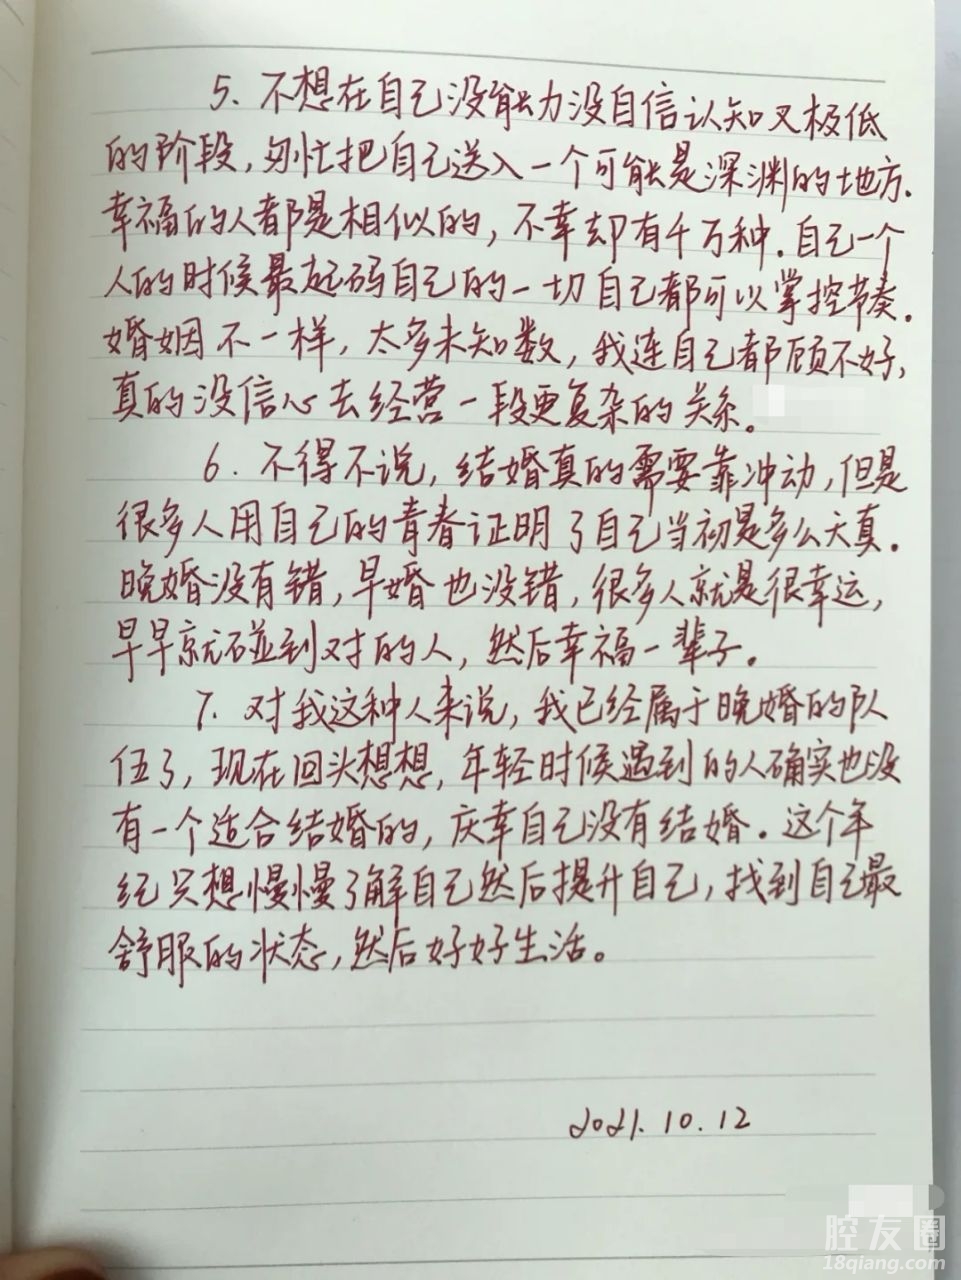 5、不想在自己没能力没自信认知又极低
的阶段,匆忙把自己送入一个可能是深渊的地方.
幸福的人都是相似的,不幸却有千万种.自己一个
人的时候最起码自己的一切自己都可以掌控节奏.
婚姻不一样,太多未知数,我连自己都顾不好,
真的没信心去经营一段更复杂的关系。
6.不得不说,结婚真的需要靠冲动,但是
很多人用自己的青春证明了自己当初是多么天真.
晚婚没有错,早婚也没错,很多人就是很幸运,
早早就碰到对的人,然后幸福一辈子。
7.对我这种人来说,我已经属于晚婚的队
伍了,现在回头想想,年轻时候遇到的人确实也没
有一个适合结婚的,庆幸自己没有结婚。这个年
纪只想慢慢了解自己然后提升自己,找到自己最
舒服的状态,然后好好生活。
2021.10.12
腔友圈
18qiang.com